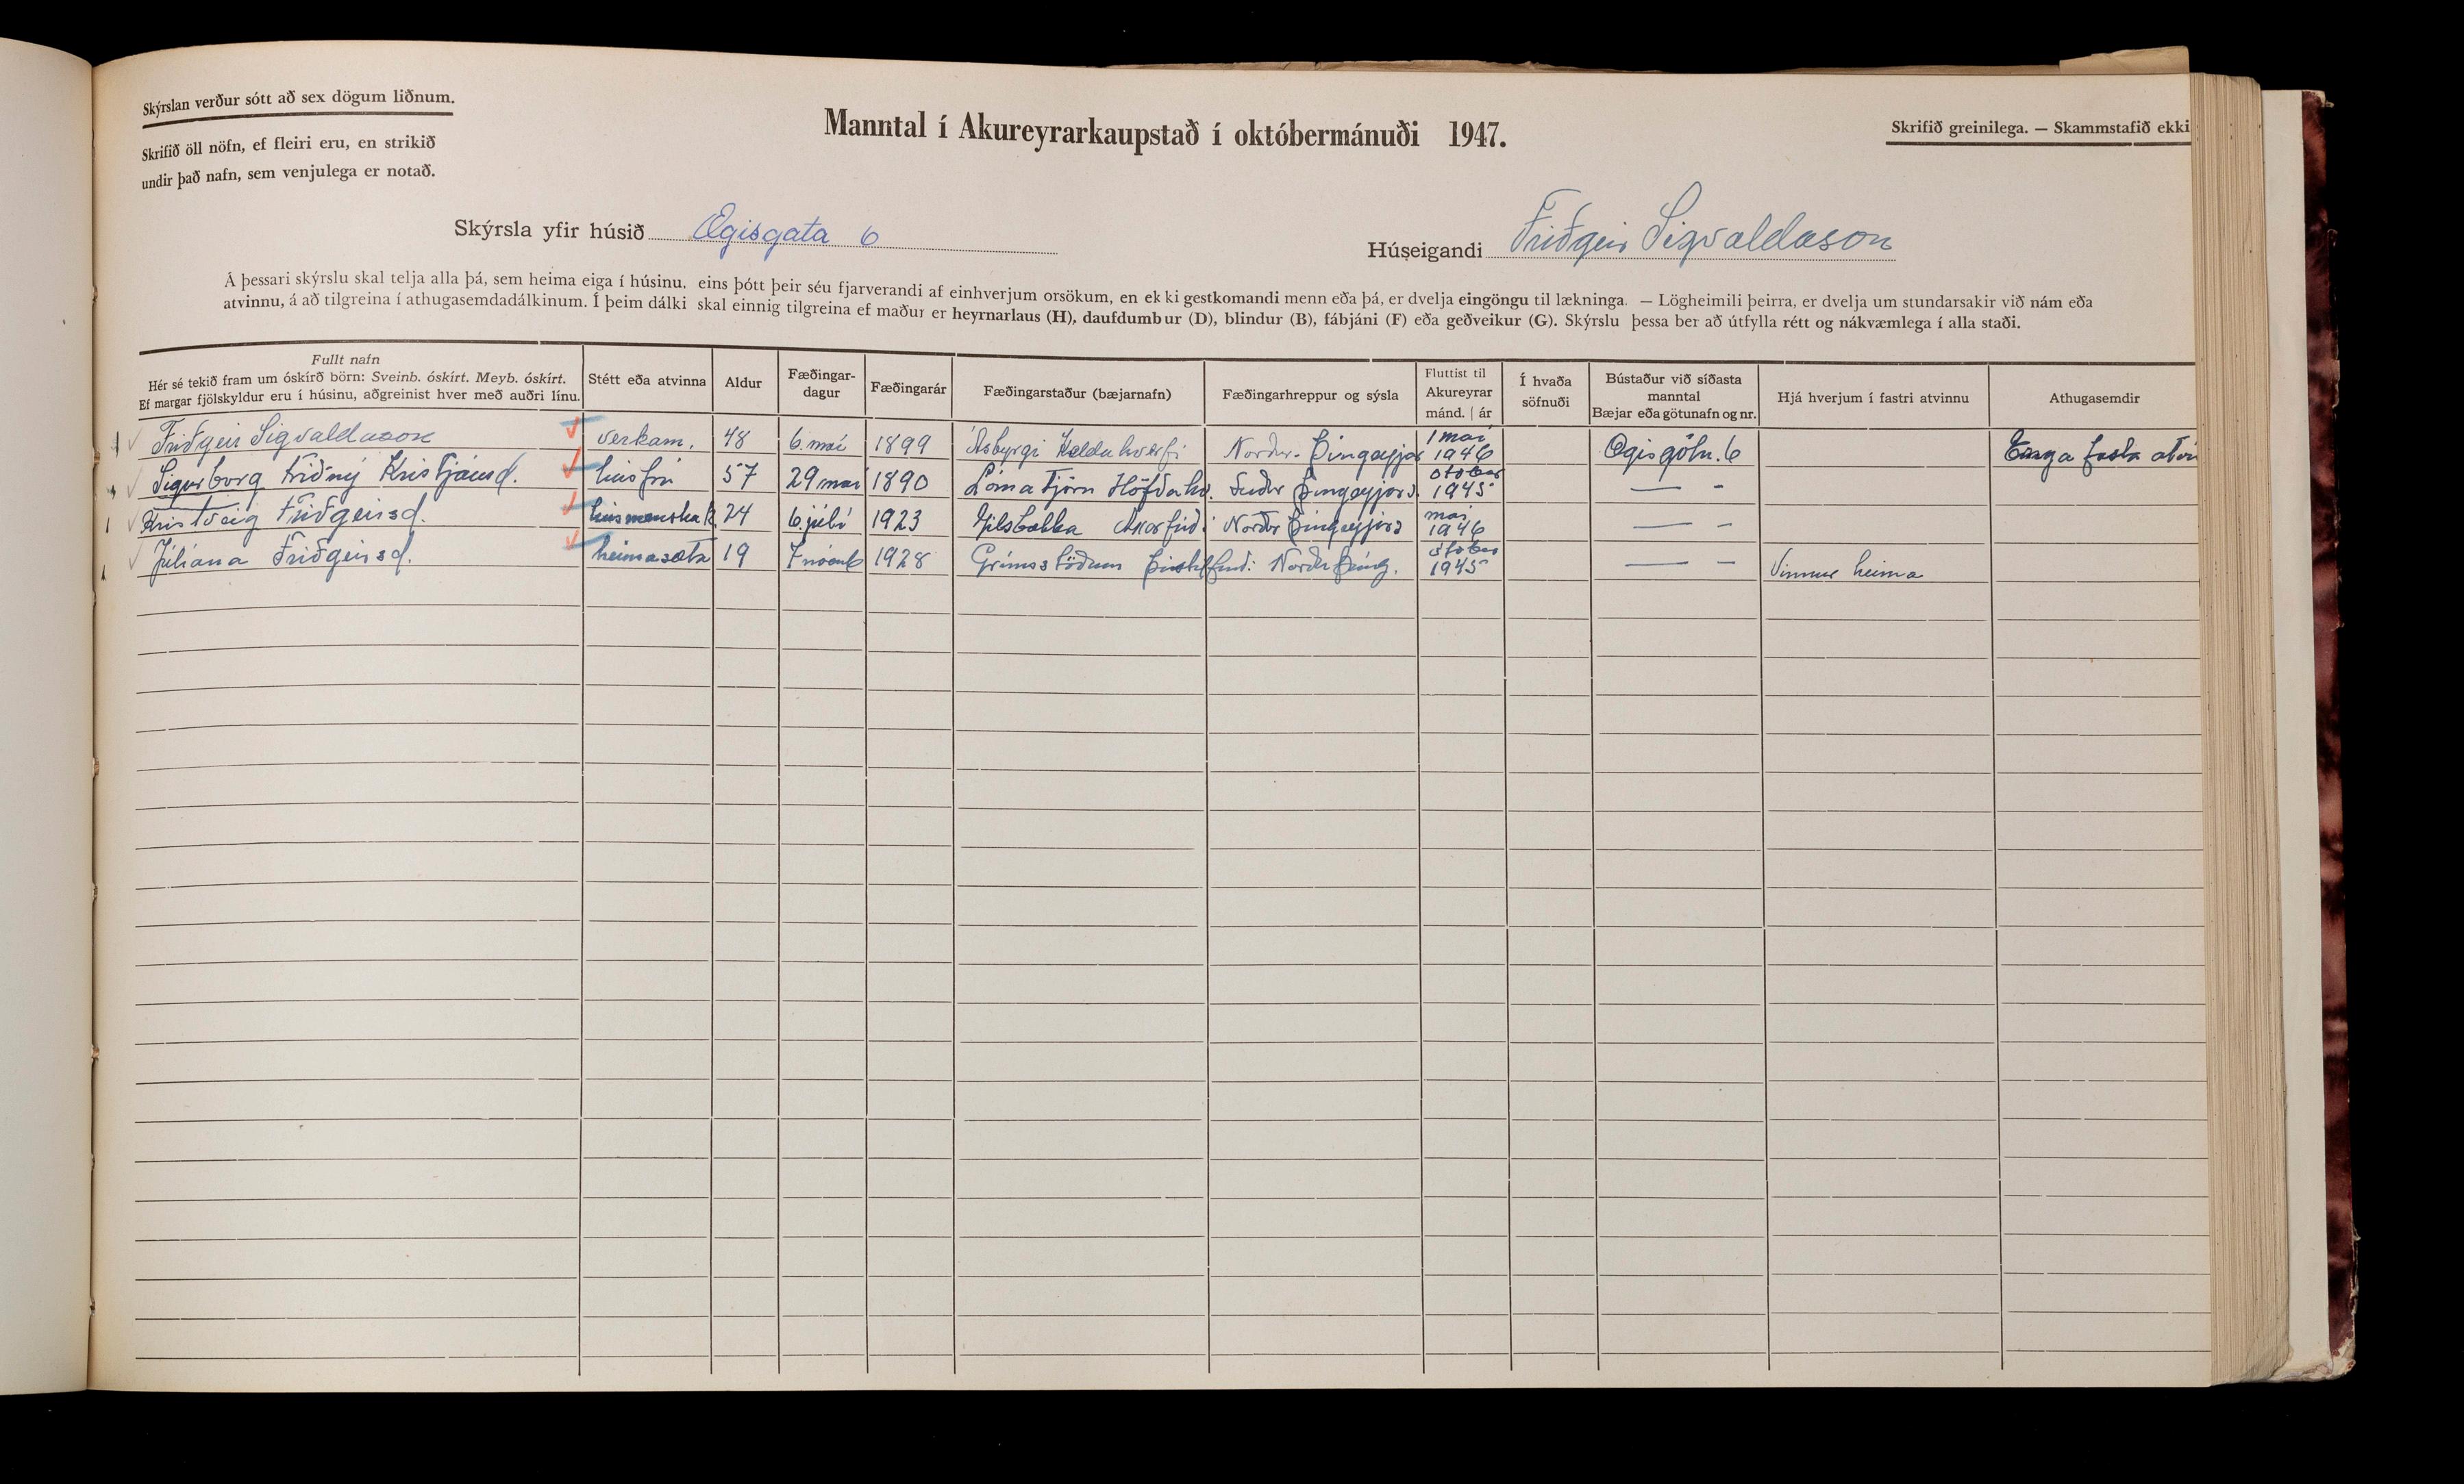 Skýrslan verður sótt að sex dögum liðnum.
Skrifið öll nöfn, ef fleiri eru, en strikið
undir það nafn, sem venjulega er notað.
Manntal í Akureyrarkaupstað í októbermánuði 1947.
Skrifið greinilega. — Skammstafið ekki
Skýrsla yfir húsið Ægisgata 6
Húseigandi Friðgeir Sigvaldason
Á þessari skýrslu skal telja alla þá, sem heima eiga í húsinu, eins þótt þeir séu fjarverandi af einhverjum orsökum, en ekki gestkomandi menn eða þá, er dvelja eingöngu til lækninga. — Lögheimili þeirra, er dvelja um stundarsakir við nám eða
atvinnu, á að tilgreina í athugasemdadálkinum. Í þeim dálki skal einnig tilgreina ef maður er heyrnarlaus (H), daufdumbur (D), blindur (B), fábjáni (F) eða geðveikur (G). Skýrslu þessa ber að útfylla rétt og nákvæmlega í alla staði.
Fullt nafn
Hér sé tekið fram um óskírð börn: Sveinb. óskírt. Meyb. óskírt.
Ef margar fjölskyldur eru í húsinu, aðgreinist hver með auðri línu.
Stétt eða atvinna
Aldur
Fæðingar-
dagur
Fæðingarár
Fæðingarstaður (bæjarnafn)
Fæðingarhreppur og sýsla
Fluttist til
Akureyrar
mánd. | ár
Í hvaða
söfnuði
Bústaður við síðasta
manntal
Bæjar eða götunafn og nr.
Hjá hverjum í fastri atvinnu
Athugasemdir
Friðgeir Sigvaldason verkam. 48 6. maí 1899 Ásbyrgi Kelduhverfi Norður-Þingeyjar 1 maí 1946 Ægisgötu. 6 Enga fasta atvi
Sigurborg Friðný Kristjánsd. húsfrú 57 29 maí 1890 Lómatjörn Höfðahv. Suður Þingeyjars. otober 1945 — -
Kristveig Friðgeirsd. 24 6. júlí 1923 Gilsbakka Axarfirð: Norður Þingeyjars maí 1946 — -
Júlíana Friðgeirsd. heimasæta 19 7 nóemb 1928 Grímsstöðum Þistilfirði: Norður Þing. otober 1945 — - Vinnur heima